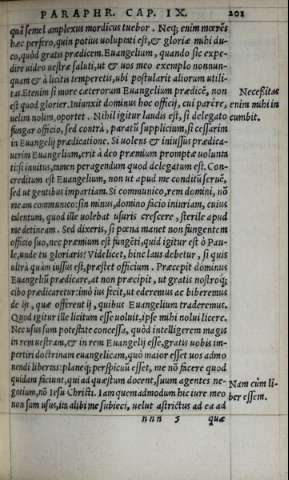 PARAPHR. CAP. IX. 201
quã semel amplexus mordicus tuebor. Neq; enim mœrẽs
hæc perfero, quin potius uoluptati est, & gloriæ mihi du-
co, quòd gratis prædicem Euangelium, quando sic expe-
dire uideo uestræ saluti, ut & uos meo exemplo nonnun-
quam & à licitis temperetis, ubi postularit aliorum utili-
tas. Etenim si more cæterorum Euangelium prædicẽ, non
est quod glorier. Iniunxit dominus hoc officij, cui parére,
uelim nolim, oportet. Nihil igitur laudis est, si delegato
fungar officio, sed contrá, paratũ supplicium, si cessarim
in Euangelij prædicatione. Si uolens & iniussus prædica-
uerim Euangelium, erit à deo præmium promptæ uolunta
ti: si inuitus, tamen peragendum quod delegatum est. Con-
creditum est Euangelium, non ut apud me conditũ seruẽ,
sed ut gentibus impartiam. Si communico, rem domini, nõ
meam communico: sin minus, domino facio iniuriam, cuius
talentum, quod ille uolebat usuris crescere, sterile apud
me detineam. Sed dixeris, si pœna manet non fungentem
officio suo, nec præmium est fungẽti, quid igitur est ô Pau-
le, unde tu glorieris? Videlicet, hinc laus debetur, si quis
ultrà quàm iussus est, præstet officium. Præcepit dominus
Euangelij prædicare, at non præcipit, ut gratis nostroq;
cibo prædicaretur: imò ius fecit, ut ederemus ac biberemus
de ijs, quæ offerrent ij, quibus Euangelium traderemus.
Quod igitur ille licitum esse uoluit, ipse mihi nolui licere.
Nec usus sum potestate concessa, quòd intelligerem magis
in rem uestram, & in rem Euangelij esse, gratis uobis im-
pertiri doctrinam euangelicam, quò maior esset uos admo
nendi libertas: planeq; perspicuũ esset, me nõ facere quod
quidam faciunt, qui ad quæstum docent, suum agentes ne-
gotium, nõ Iesu Christi. Iam quemadmodum hic iure meo
non sum usus, ita alibi me subieci, uelut astrictus ad ea ad
nnn 5 quæ
Necessitas
enim mihi in
cumbit.
Nam cùm li-
ber essem.